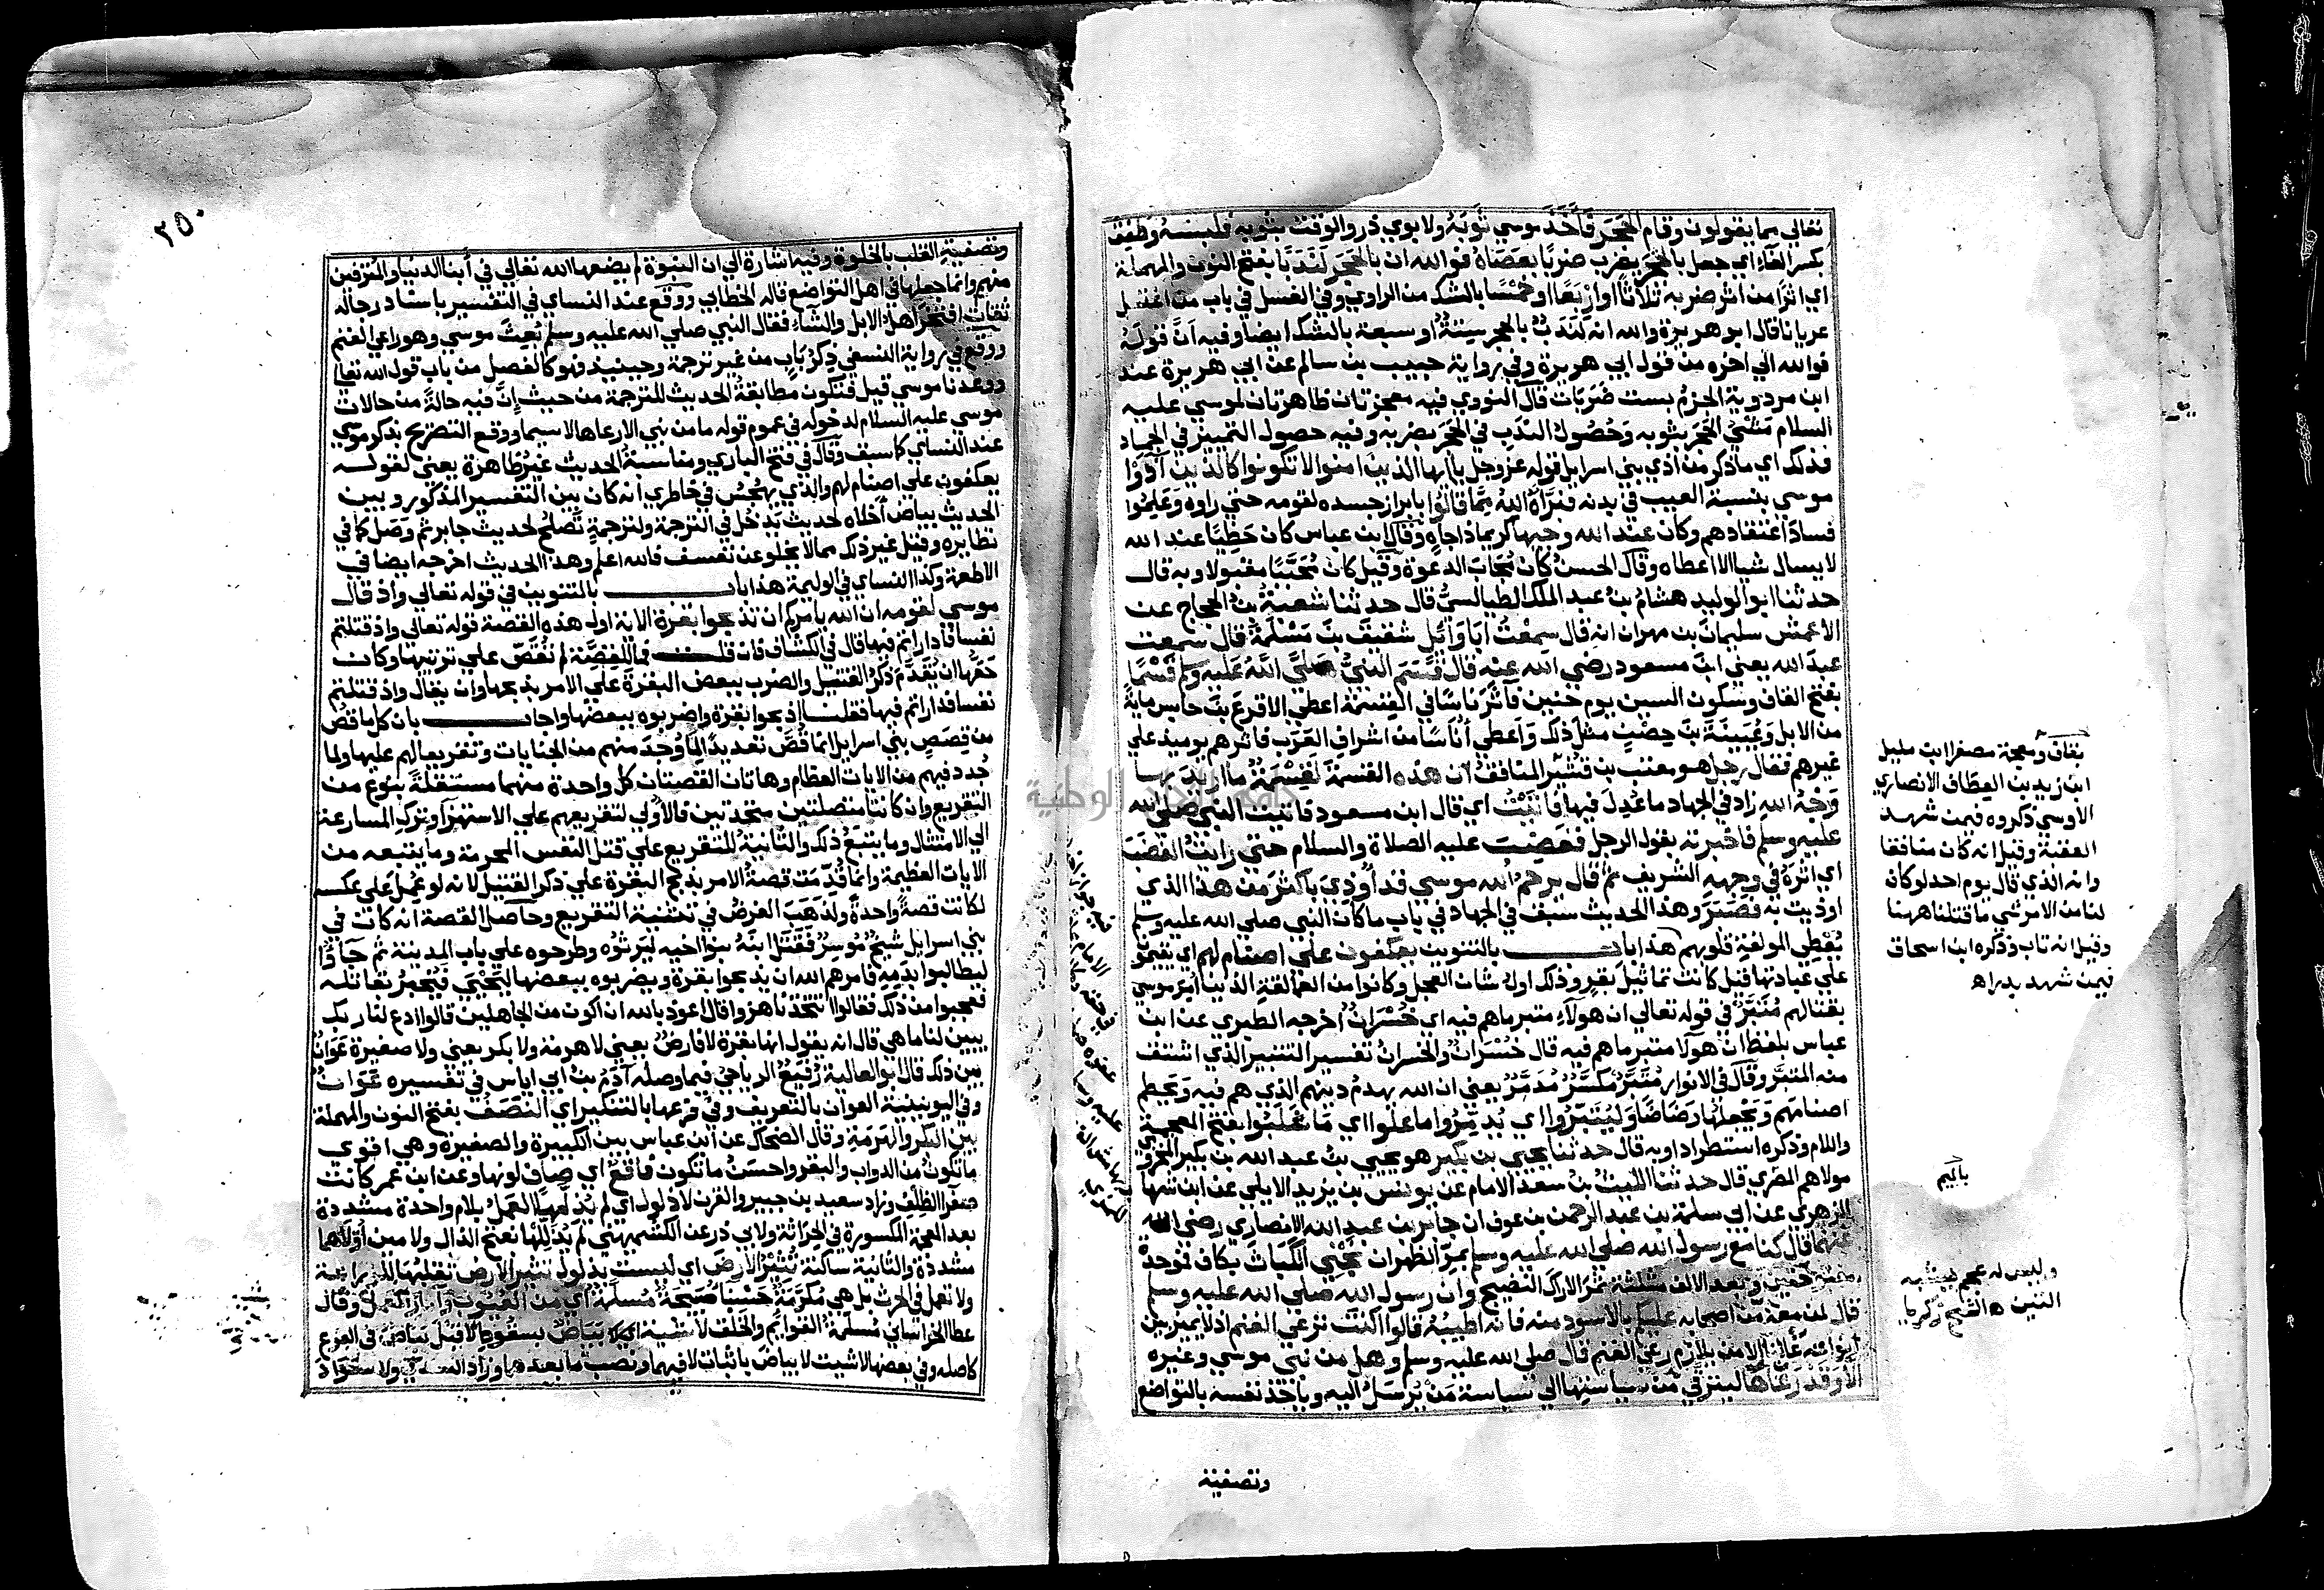 تعالى بما يقولون وقام الحجر فأخذ موسى ثوبه ولابوي ذر والوقت بثوبه فلبسه وطفق
بكسر الفاء اي جعل بالحجر يضرب ضربا بعصاه فوالله ان بالحجر لندبا بفتح النون والمهملة
اي اثرا من اثر ضربه ثلاثا او اربعا او خمسا بالشك من الراوي وفي الغسل في باب من اغتسل
عريانا قال ابو هريرة والله انه لندب بالحجر ستة او سبعة بالشك ايضا وفيه ان قوله
فوالله الي اخره من قول ابي هريرة وفي رواية حبيب بن سالم عن ابي هريرة عند
ابن مردوية الجزم بست ضربات قال النووي فيه معجزتان ظاهرتان لموسي عليه
السلام مشي الحجر بثوبه وحصول الندب في الحجر بضربه وفيه حصول التمييز في الجماد
فذلك اي ما ذكر من اذي بني اسرايل قوله عز وجل يا ايها الذين امنوا لا تكونوا كالذين آذوا
موسي بنسبة العيب في بدنه فبرأه الله مما قالوا بابراز جسده لقومه حتي راوه وعلموا
فساد اعتقادهم وكان عند الله وجيها كريما ذا جاه وقال ابن عباس كان حظيا عند الله
لا يسال شيا الا اعطاه وقال الحسن كان مجاب الدعوة وقيل كان محببا مقبولا وبه قال
حدثنا ابو الوليد هشام بن عبد الملك الطيالسي قال حدثنا شعبة بن الحجاج عن
الاعمش سليمان بن مهران انه قال سمعت ابا وائل شقيق بن مسلمة قال سمعت
عبد الله يعني ابن مسعود رضي الله عنه قال قسم النبي صلي الله عليه وسلم قسما
بفتح القاف وسكون السين يوم حنين فاثر ناسا في القسمة اعطي الاقرع بن حابس ماية
من الابل وعيينة بن حصن مثل ذلك واعطي أناسا من اشراف العرب فاثرهم يوميذ علي
غيرهم فقال رجل هو معتب بن قشير المنافق ان هذه القسمة لقسمة ما اريد بها
وجه الله زاد في الجهاد ما عدل فيها فاتيت اي قال ابن مسعود فاتيت النبي صلي الله
عليه وسلم فاخبرته بقول الرجل فغضب عليه الصلاة والسلام حتي رايت الغضب
اي اثره في وجهه الشريف ثم قال يرحم الله موسي قد أوذي باكثر من هذا الذي
اوذيت به فصبر وهذا الحديث سبق في الجهاد في باب ما كان النبي صلي الله عليه وسلم
يعطي المولفة قلوبهم هذا باب بالتنوين يعكفون علي اصنام لهم اي يقيمون
علي عبادتها قيل كانت تماثيل بقر وذلك اول شان العجل وكانوا من العمالقة الذين امر موسي
بقتالهم متبر في قوله تعالي ان هولاء متبر ما هم فيه اي خسران اخرجه الطبري عن ابن
عباس بلفظ ان هولا متبر ما هم فيه قال خسران والخسران تفسير التتبير الذي اشتق
منه المتبر وقال في الانوار متبر مكسر مدمر يعني ان الله يهدم دينهم الذي هم فيه ويحطم
اصنامهم ويجعلها رضاضا وليتبروا اي يدمروا ما علوا اي ما غلبوا بفتح المعجمة
واللام وذكره استطرادا وبه قال حدثنا يحيي بن بكير هو يحيي بن عبد الله بن بكير المخزومي
مولاهم المصري قال حدثنا الليث بن سعد الامام عن يونس بن يزيد الايلي عن ابن شهاب
الزهري عن ابي سلمة بن عبد الرحمن بن عوف ان جابر بن عبد الله الانصاري رضي الله
عنهما قال كنا مع رسول الله صلي الله عليه وسلم بمر الظهران نجني الكباث بكاف فموحدة
خفيفتين وبعد الالف مثلثة ثمر الاراك النضيج وان رسول الله صلي الله عليه وسلم
قال لمن معه من اصحابه عليكم بالاسود منه فانه اطيبه قالوا اكنت ترعي الغنم اذ لا يميز بين
انواعه غالبا الا من يلازم رعي الغنم قال صلي الله عليه وسلم وهل من نبي موسي وغيره
الا وقد رعاها ليترقي من سياستها الي سياسة من يرسل اليه وياخذ نفسه بالتواضع
وتصفية
بقاف ومعجمة مصغرا ابن مليل
ابن زيد بن العطاف الانصاري
الاوسي ذكروه فيمن شهد
العقبة وقيل انه كان منافقا
وانه الذي قال يوم احد لو كان
لنا من الامر شي ما قتلنا ههنا
وقيل انه تاب وذكره ابن اسحاق
فيمن شهد بدرا اه
بالميم
وليس له عجم
التين اه الشيخ زكريا
٢٥٠
وتصفية القلب بالخلوة وفيه اشارة الي ان النبوة لم يضعها الله تعالي في أبنا الدنيا والمترفين
منهم وانما جعلها في اهل التواضع قاله الخطابي ووقع عند النساي في التفسير باسناد رجاله
ثقات افتخر اهل الابل والشاء فقال النبي صلي الله عليه وسلم بعث موسي وهو راعي الغنم
ووقع في رواية النسفي ذكر باب من غير ترجمة وحينيذ فهو كالفصل من باب قول الله تعالي
ووعدنا موسي قيل فتكون مطابقة الحديث للترجمة من حيث إن فيه حالة من حالات
موسي عليه السلام لدخوله في عموم قوله ما من نبي الا رعاها لا سيما ووقع التصريح بذكر موسي
عند النساي كما سبق وقال في فتح الباري ومناسبة الحديث غير ظاهرة يعني لقوله
يعكفون علي اصنام لهم والذي يهجس في خاطري انه كان بين التفسير المذكور وبين
الحديث بياض اخلاه لحديث يدخل في الترجمة ولترجمة تصلح لحديث جابر ثم وصل كما في
نظايره وقيل غير ذلك مما لا يخلو عن تعسف فالله اعلم وهذا الحديث اخرجه ايضا في
الاطعمة وكذا النساي في الوليمة هذا باب بالتنوين في قوله تعالي واذ قال
موسي لقومه ان الله يامركم ان تذبحوا بقرة الاية اول هذه القصة قوله تعالي واذ قتلتم
نفسا فاداراتم فيها قال في الكشاف فان قلت فما للقصة لم تقص علي ترتيبها وكان
حقها ان يقدم ذكر القتيل والضرب ببعض البقرة علي الامر بذبحها وان يقال واذ قتلتم
نفسا فداراتم فيها فقلنا إذبحوا بقرة واضربوه ببعضها واجاب بان كل ما قص
من قصص بني اسرايل انما قص تعديدا لما وجد منهم من الجنايات وتقريعا لهم عليها ولما
جدد فيهم من الايات العظام وهاتان القصتان كل واحدة منهما مستقلة بنوع من
التقريع وان كانتا متصلتين متحدتين فالاولي لتقريعهم علي الاستهزآ وترك المسارعة
الي الامتثال وما يتبع ذلك والثانية للتقريع علي قتل النفس المحرمة وما يتبعه من
الايات العظيمة وانما قدمت قصة الامر بذبح البقرة علي ذكر القتيل لانه لو عمل علي عكسه
لكانت قصة واحدة ولذهب الغرض في تثنية التقريع وحاصل القصة انه كان في
بني اسرايل شيخ موسر فقتل ابنه بنو اخيه ليرثوه وطرحوه علي باب المدينة ثم جاؤا
ليطالبوا بدمه فامرهم الله ان يذبحوا بقرة ويضربوه ببعضها ليحيي فيخبر بقاتله
فعجبوا من ذلك فقالوا اتتخذنا هزوا قال اعوذ بالله ان اكون من الجاهلين قالوا ادع لنا ربك
يبين لنا ما هي قال انه يقول انها بقرة لا فارض يعني لا هرمة ولا بكر يعني ولا صغيرة عوان
بين ذلك قال ابو العالية رفيع الرياحي فيما وصله آدم بن ابي اياس في تفسيره عوان
وفي اليونينية العوان بالتعريف وفي فرعها بالتنكير اي النصف بفتح النون والمهملة
بين البكر والهرمة وقال الضحاك عن ابن عباس بين الكبيرة والصغيرة وهي اقوي
ما تكون من الدواب والبقر واحسن ما تكون فاقع اي صاف لونها وعن ابن عمر كانت
صفرآ الظلف وزاد سعيد بن جبير والقرن لا ذلول اي لم يذلها العمل بلام واحدة مشددة
بعد المعجمة المكسورة في الحراثة ولابي ذر عن الكشميهني لم يذللها بفتح الذال ولامين أولاهما
مشددة والثانية ساكنة تثير الارض اي ليست بذلول تثير الارض تقلبها للزراعة
ولا تعمل في الحرث بل هي مكرمة حسنا صبيحة مسلمة اي من العيوب واثار العمل وقال
عطا الخراساني مسلمة القوايم والخلف لا شية اي لا بياض بسقوط لا قبل بياض في الفرع
كاصله وفي بعضها لا شيت لا بياض باثبات لا فيهما ونصب ما بعدهما وزاد السدي ولا سواد